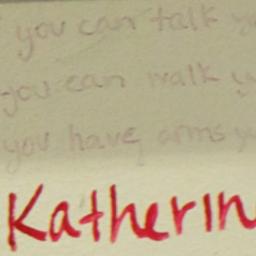 you can talk
you can walk
you have arms
Katherin